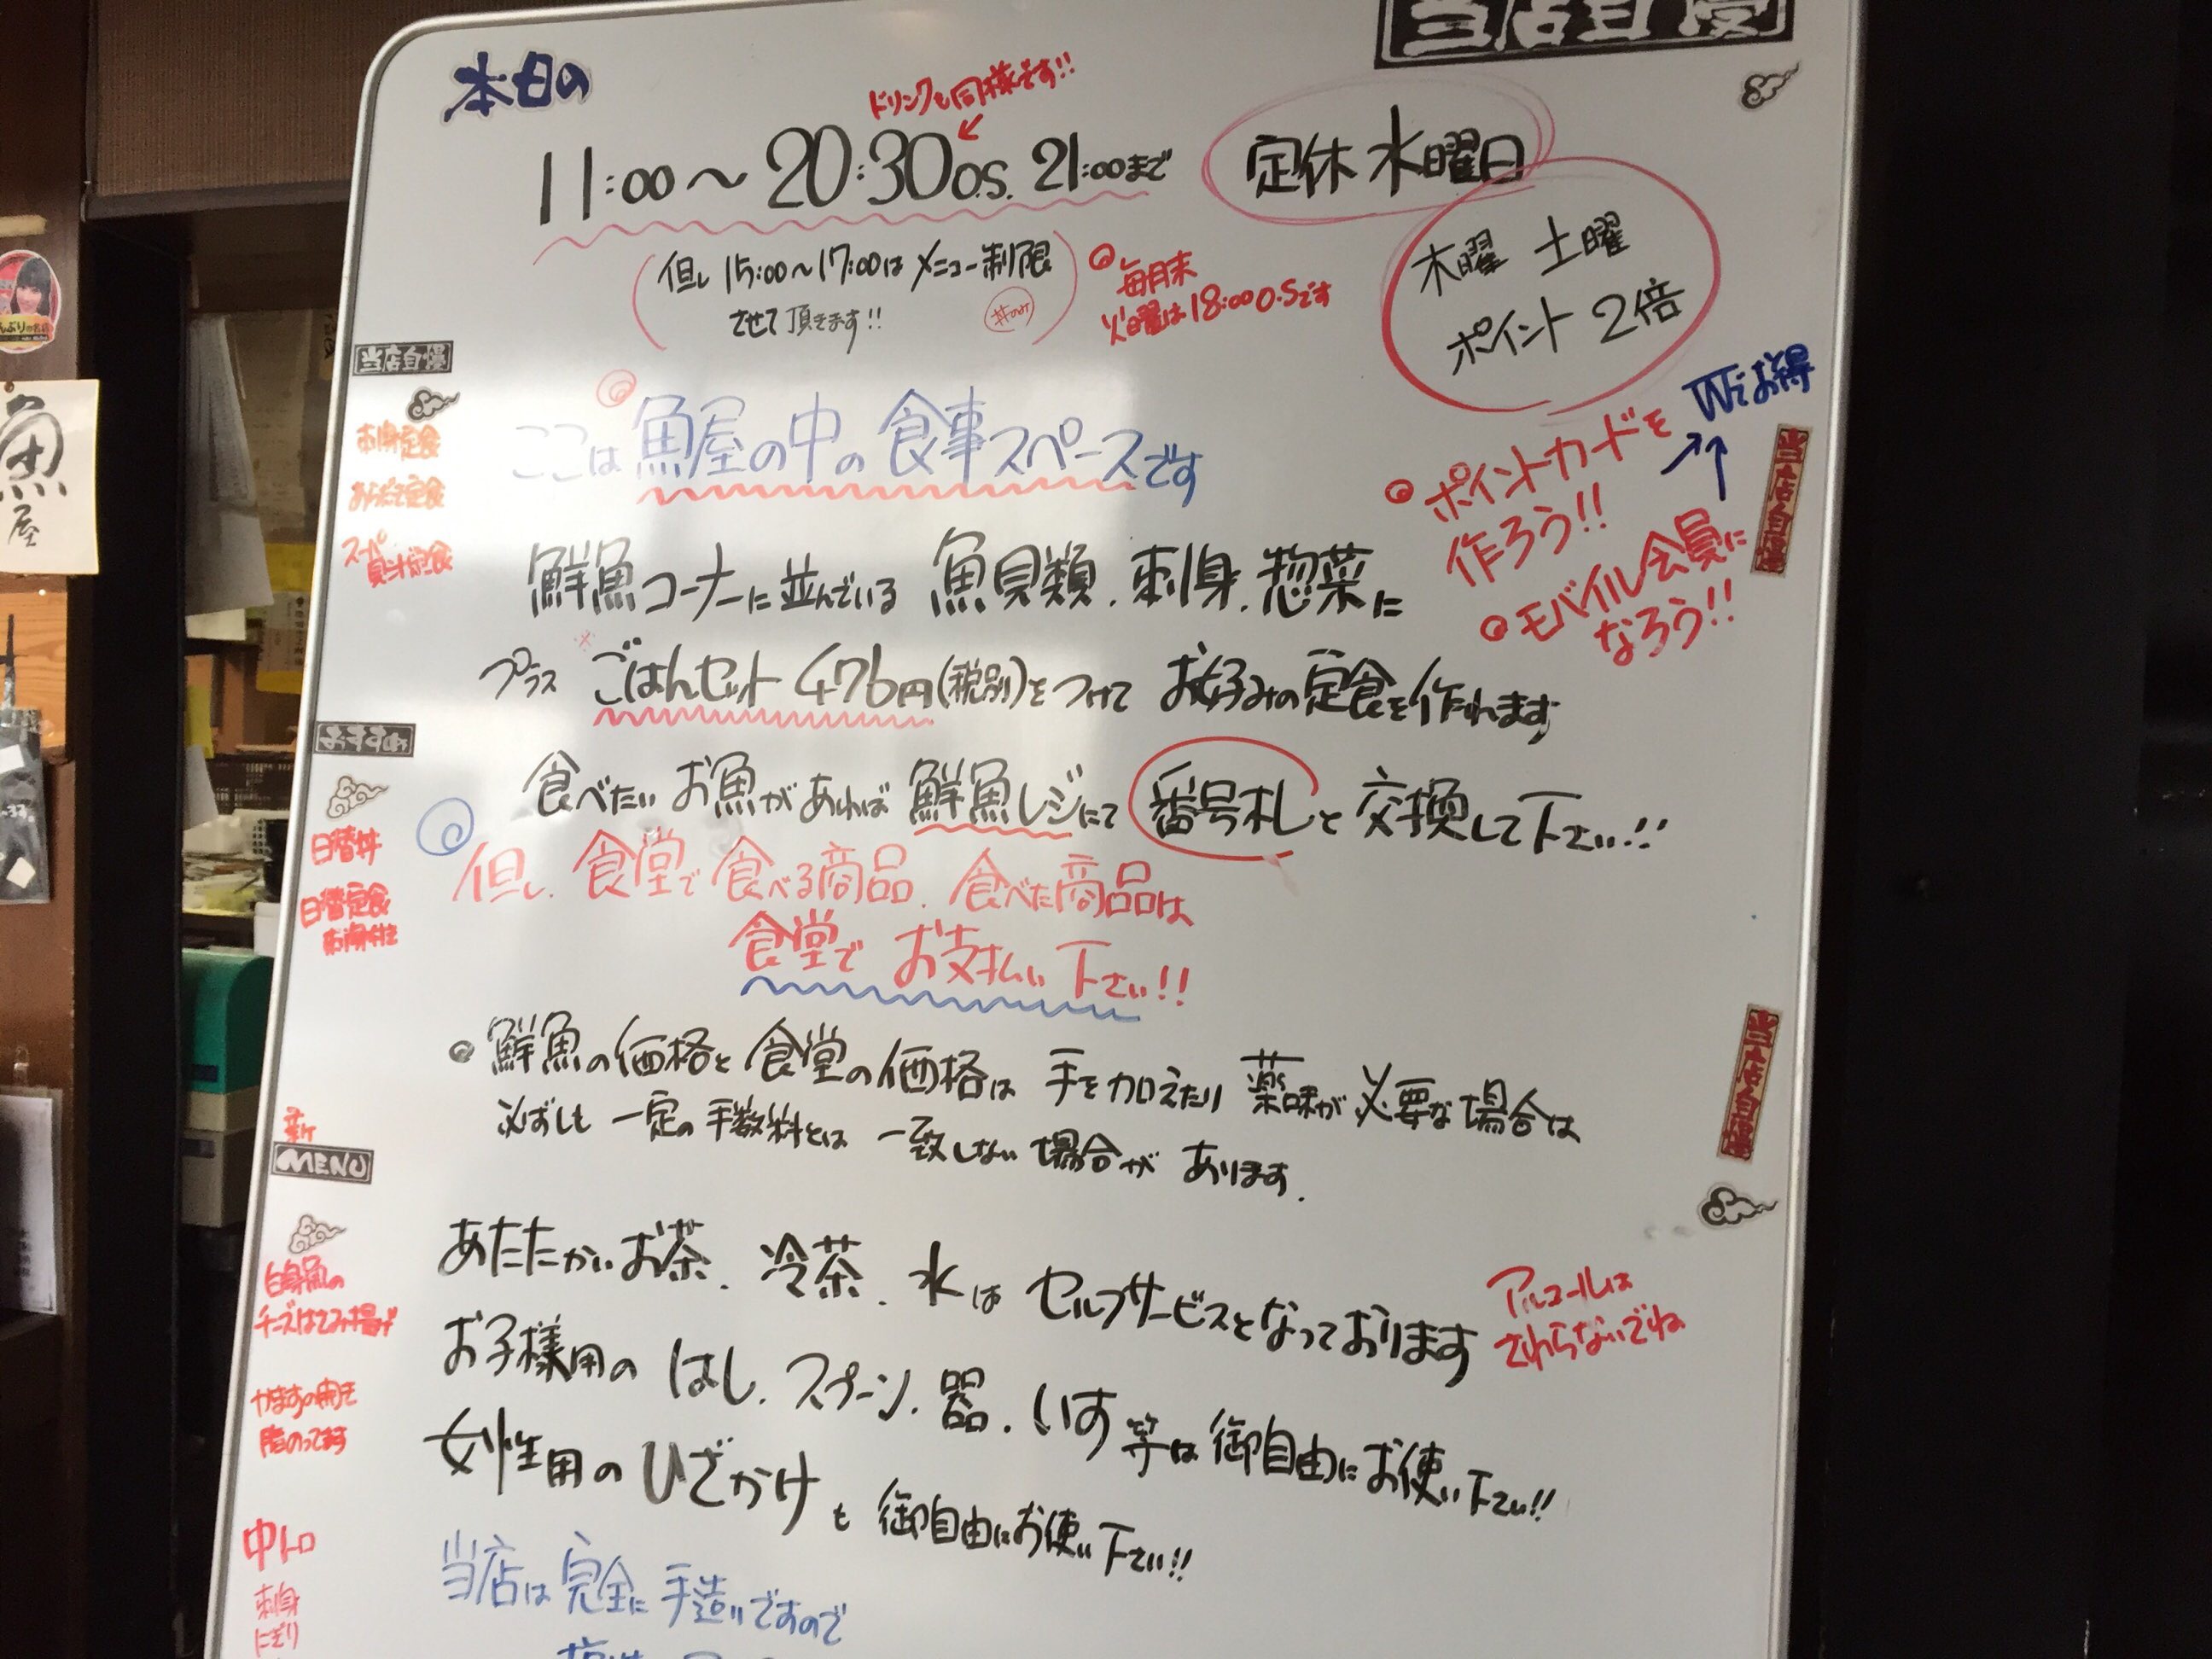 当店自慢
本日の
ドリンクも同様です!!
11:00〜20:30 O.S. 21:00まで
定休 水曜日
(但し 15:00〜17:00は メニュー制限
させて頂きます!!
丼のみ)
毎月末
火曜は18:00 O.Sです
木曜 土曜
ポイント 2倍
Wでお得
ポイントカードを
作ろう!!
モバイル会員に
なろう!!
ここは魚屋の中の食事スペースです
鮮魚コーナーに並んでいる 魚貝類.刺身.惣菜に
プラス ごはんセット 476円(税別)をつけて お好みの定食を作れます
食べたい お魚が あれば 鮮魚レジにて 番号札と 交換して下さい!!
但し. 食堂で食べる商品. 食べた商品は
食堂で お支払い 下さい!!
鮮魚の価格と 食堂の価格は 手を加えたり 薬味が必要な場合は
必ずしも 一定の手数料とは 一致しない 場合が あります.
あたたかいお茶. 冷茶. 水は セルフサービスとなっております
アルコールは
さわらないでね
お子様用の はし. スプーン. 器. いす 等は 御自由にお使い下さい!!
女性用の ひざかけ も 御自由にお使い下さい!!
当店は完全に手造りですので
当店自慢
刺身定食
あらだき定食
スーパー
貝汁定食
おすすめ
日替丼
日替定食
刺身付き
新
MENU
白身魚の
チーズはさみ揚げ
かますの開き
脂のってます
中トロ
刺身
にぎり
当店自慢
当店自慢
魚屋